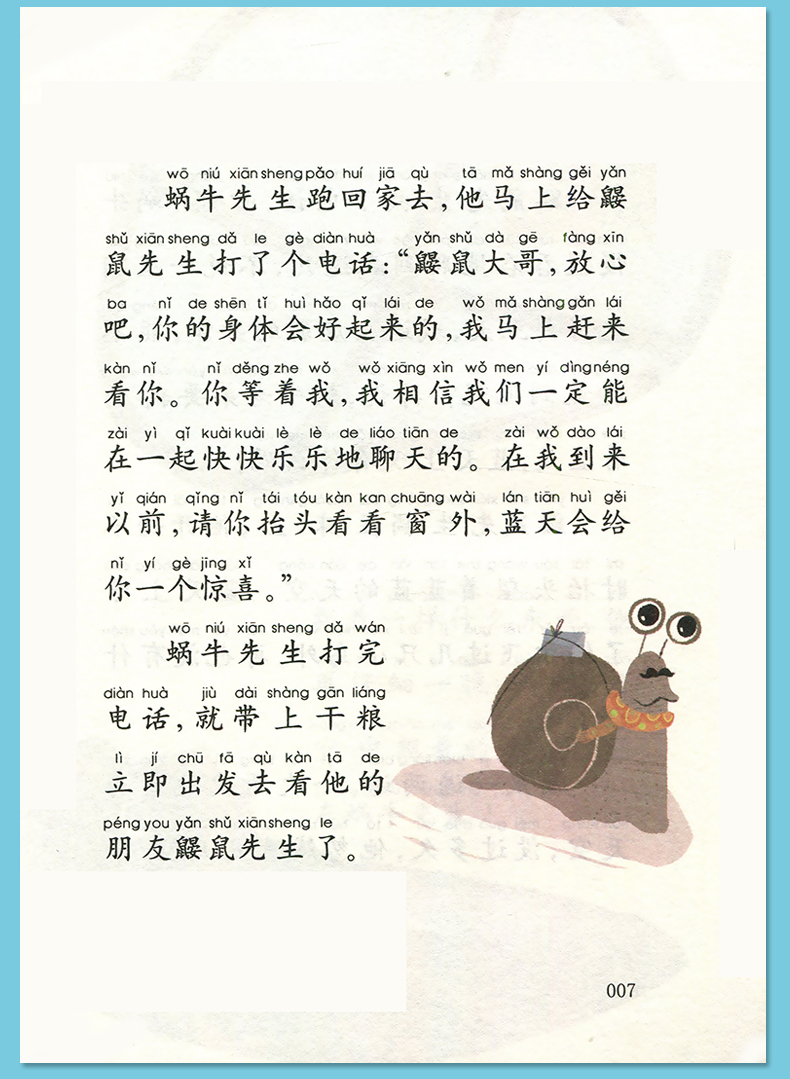 wō niú xiān sheng pǎo huí jiā qù tā mǎ shàng gěi yǎn
蜗牛先生跑回家去，他马上给鼹
shǔ xiān sheng dǎ le gè diàn huà yǎn shǔ dà gē fàng xīn
鼠先生打了个电话：“鼹鼠大哥，放心
ba nǐ de shēn tǐ huì hǎo qǐ lái de wǒ mǎ shàng gǎn lái
吧，你的身体会好起来的，我马上赶来
kàn nǐ nǐ děng zhe wǒ wǒ xiāng xìn wǒ men yí dìng néng
看你。你等着我，我相信我们一定能
zài yì qǐ kuài kuài lè lè de liáo tiān de zài wǒ dào lái
在一起快快乐乐地聊天的。在我到来
yǐ qián qǐng nǐ tái tóu kàn kan chuāng wài lán tiān huì gěi
以前，请你抬头看看窗外，蓝天会给
nǐ yí gè jīng xǐ
你一个惊喜。”
wō niú xiān sheng dǎ wán
蜗牛先生打完
diàn huà jiù dài shàng gān liáng
电话，就带上干粮
lì jí chū fā qù kàn tā de
立即出发去看他的
péng you yǎn shǔ xiān sheng le
朋友鼹鼠先生了。
007